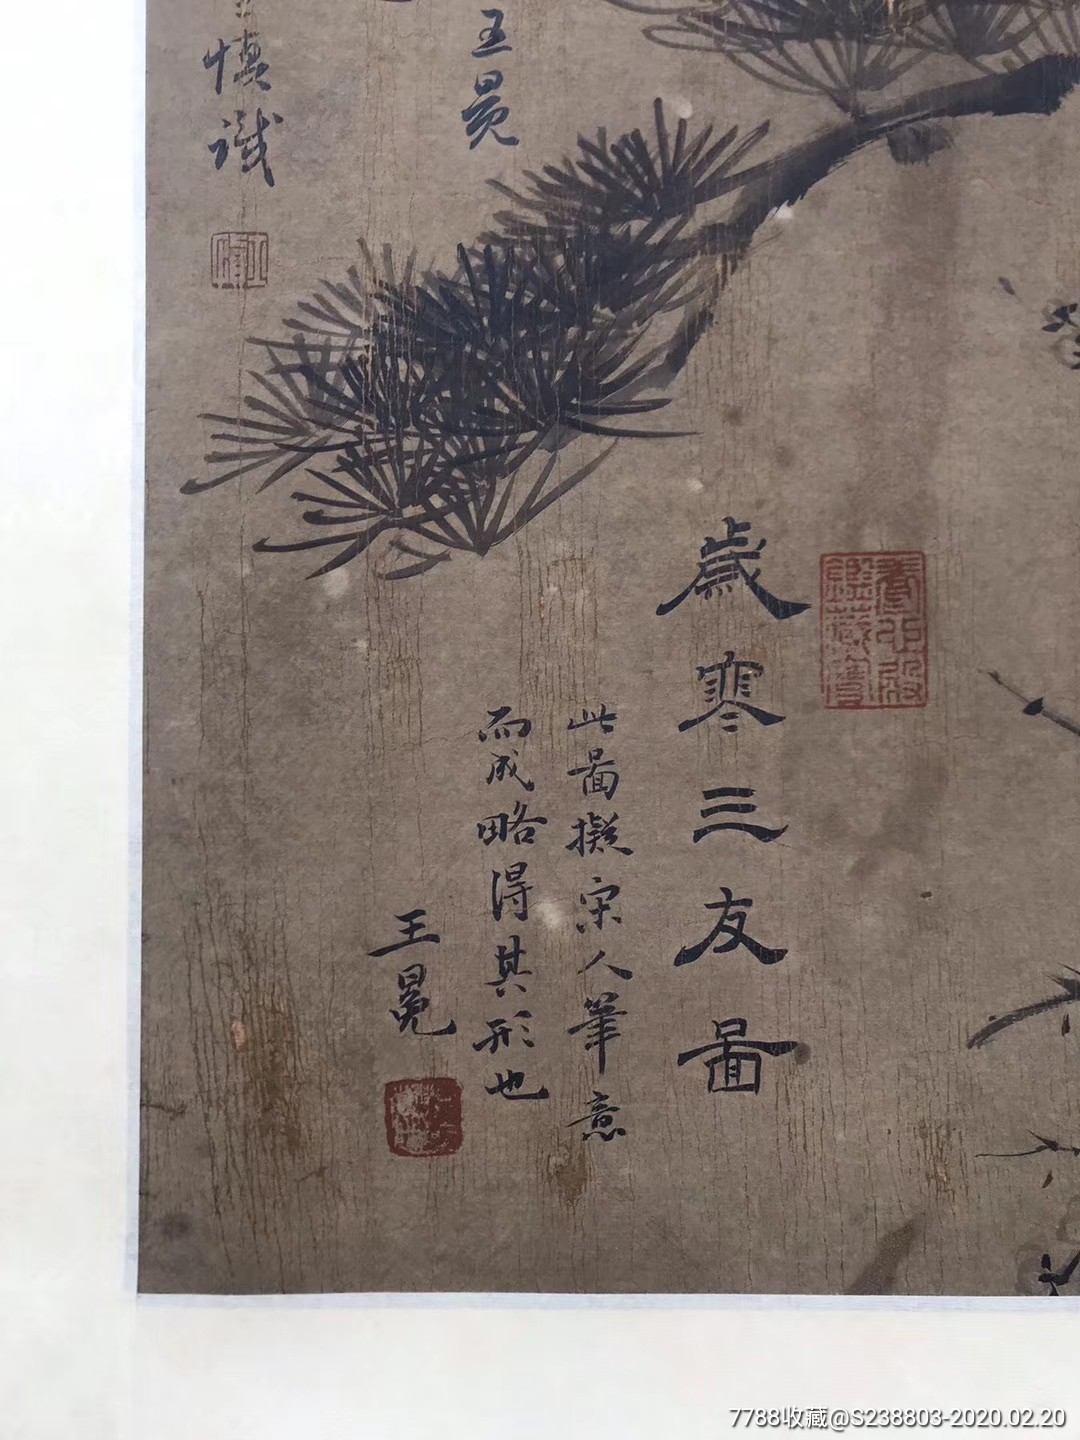 歲寒三友圖
此啚擬宋人筆意
而成略得其形也
王冕
王冕
慎識
7788收藏@S238803-2020.02.20